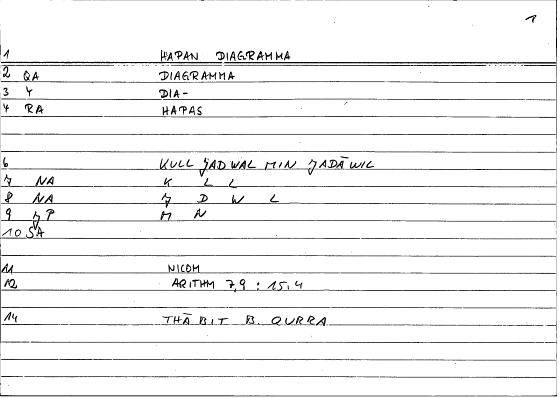 1
1 HAPAN DIAGRAMMA
2 QA DIAGRAMMA
3 Y DIA-
4 RA HAPAS
6 KULL JADWAL MIN JADĀWIL
7 NA K L L
8 NA J D W L
9 JP M N
10 SA
11 NICOM
12 ARITHM 7,9 : 15,4
14 THĀBIT B. QURRA